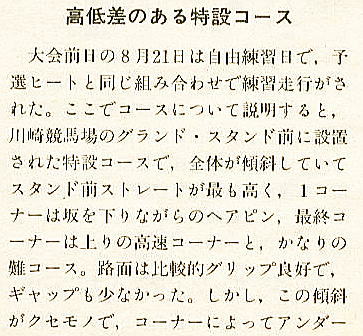 高低差のある特設コース
大会前日の8月21日は自由練習日で，予
選ヒートと同じ組み合わせで練習走行がさ
れた。ここでコースについて説明すると，
川崎競馬場のグランド・スタンド前に設置
された特設コースで，全体が傾斜していて
スタンド前ストレートが最も高く，1コー
ナーは坂を下りながらのヘアピン，最終コ
ーナーは上りの高速コーナーと，かなりの
難コース。路面は比較的グリップ良好で，
ギャップも少なかった。しかし，この傾斜
がクセモノで，コーナーによってアンダー